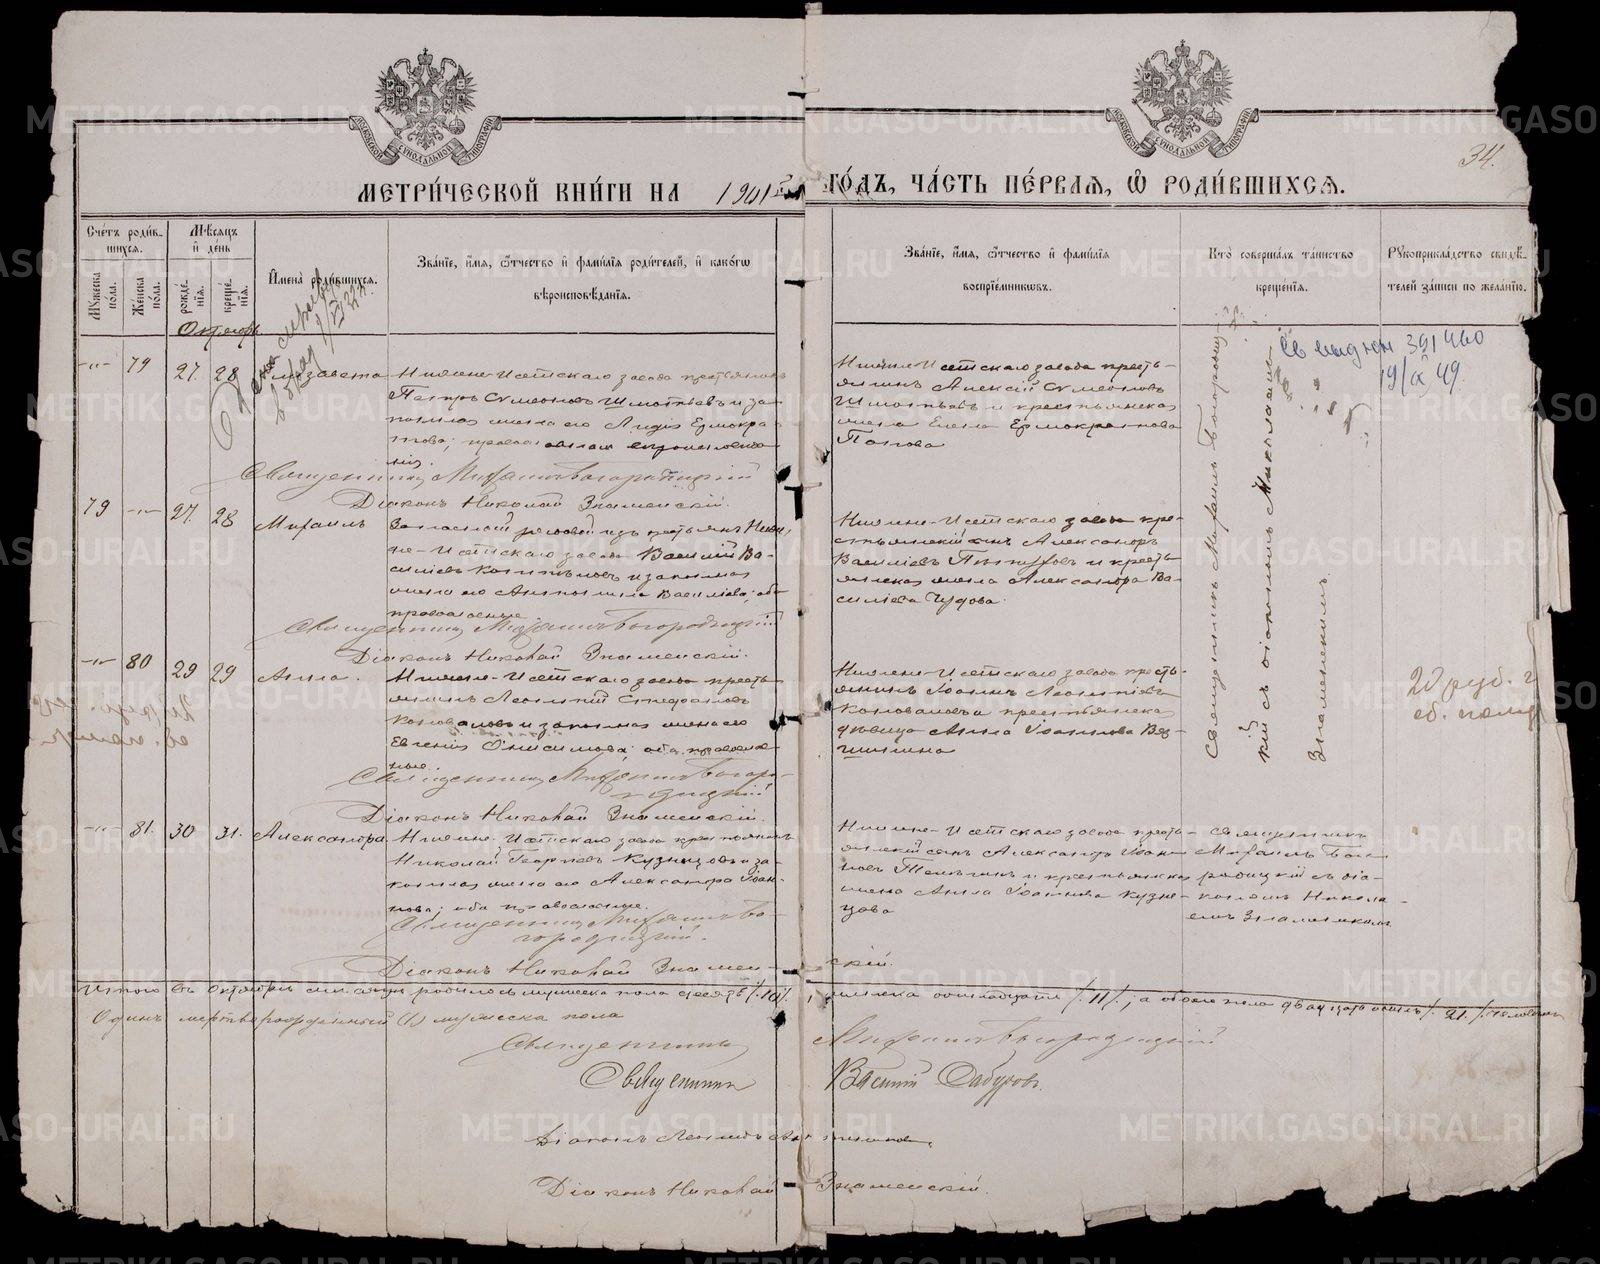 МЕТРИ́ЧЕСКОЙ КНИ́ГИ НА 1901 ГО́ДЪ, ЧА́СТЬ ПЕ́РВАЯ, Ѽ РОДИ́ВШИХСЯ.
34.
Сче́тъ роди́в-
шихся.
Му́жеска
по́ла.
Же́нска
по́ла.
Мѣ́сяцъ
и де́нь
рожде́-
нія.
креще́-
нія.
Имена̀ роди́вшихся.
Зва́ніе, и́мя, ѻ́тчество и фами́лія роди́телей, и како́гѡ
вѣроисповѣ́данія.
Зва́ніе, и́мя, ѻ́тчество и фами́лія
воспріе́мниковъ.
Кто̀ соверша́лъ та́инство
креще́нія.
Рукоприкла́дство свидѣ́-
телей за́писи по жела́нію.
Октябрь
79 27. 28 Елизавета
Нижне-Исетскаго завода крестьянинъ
Петръ Симеоновъ
жена его Лидія Ермокра-
това;
Священникъ Михаилъ Богородицкій
Діаконъ Николай Знаменскій.
Нижне-Исетскаго завода кресть-
янинъ Алексій Симеоновъ
и крестьянская
жена Елена Ермократова
Попова
391460
19/X 49.
79 27. 28 Михаилъ
Нижне-Исетскаго завода Василій Ва-
сильевъ и законная
жена его Васильева; оба
православные
Священникъ Михаилъ Богородицкій
Діаконъ Николай Знаменскій.
Нижне-Исетскаго завода кре-
стьянскій сынъ Александръ
Васильевъ и кресть-
янская жена Александра Ва-
сильева Чудова.
80 29 29 Анна.
Нижне-Исетскаго завода кресть-
янинъ Леонтій Стефановъ
Коноваловъ и законная жена его
Евгенія Онисимова; оба православ-
ные.
Священникъ Михаилъ Богоро-
дицкій
Діаконъ Николай Знаменскій.
Нижне-Исетскаго завода кресть-
янинъ Іоаннъ Леонтіевъ
Коноваловъ и крестьянская
дѣвица Анна Іоаннова Вер-
шинина
Священникъ Михаилъ Богородиц-
кій съ діакономъ Николаемъ
Знаменскимъ
20 руб.
81. 30 31. Александра
Нижне-Исетскаго завода крестьянинъ
Николай Георгіевъ Кузнецовъ и за-
конная жена его Александра Іоан-
нова; оба православные.
Священникъ Михаилъ Бо-
городицкій.
Діаконъ Николай Знамен-
скій.
Нижне-Исетскаго завода кресть-
янскій сынъ Александръ Іоан-
новъ и крестьянская
жена Анна Іоаннова Кузне-
цова
Священникъ
Михаилъ Бого-
родицкій съ діа-
кономъ Никола-
емъ Знаменскимъ
Итого въ октябрѣ мѣсяцѣ родилось мужеска пола десять /.10/. , женска одинадцать /.11/.; а обоего пола двадцать одинъ /.21./ человекъ
Одинъ мертворожденный (1) мужеска пола
Священникъ Михаилъ Богородицкій
Священникъ Василій Сабуровъ.
Діаконъ Леонидъ
Діаконъ Николай Знаменскій.
METRIKI.GASO-URAL.RU